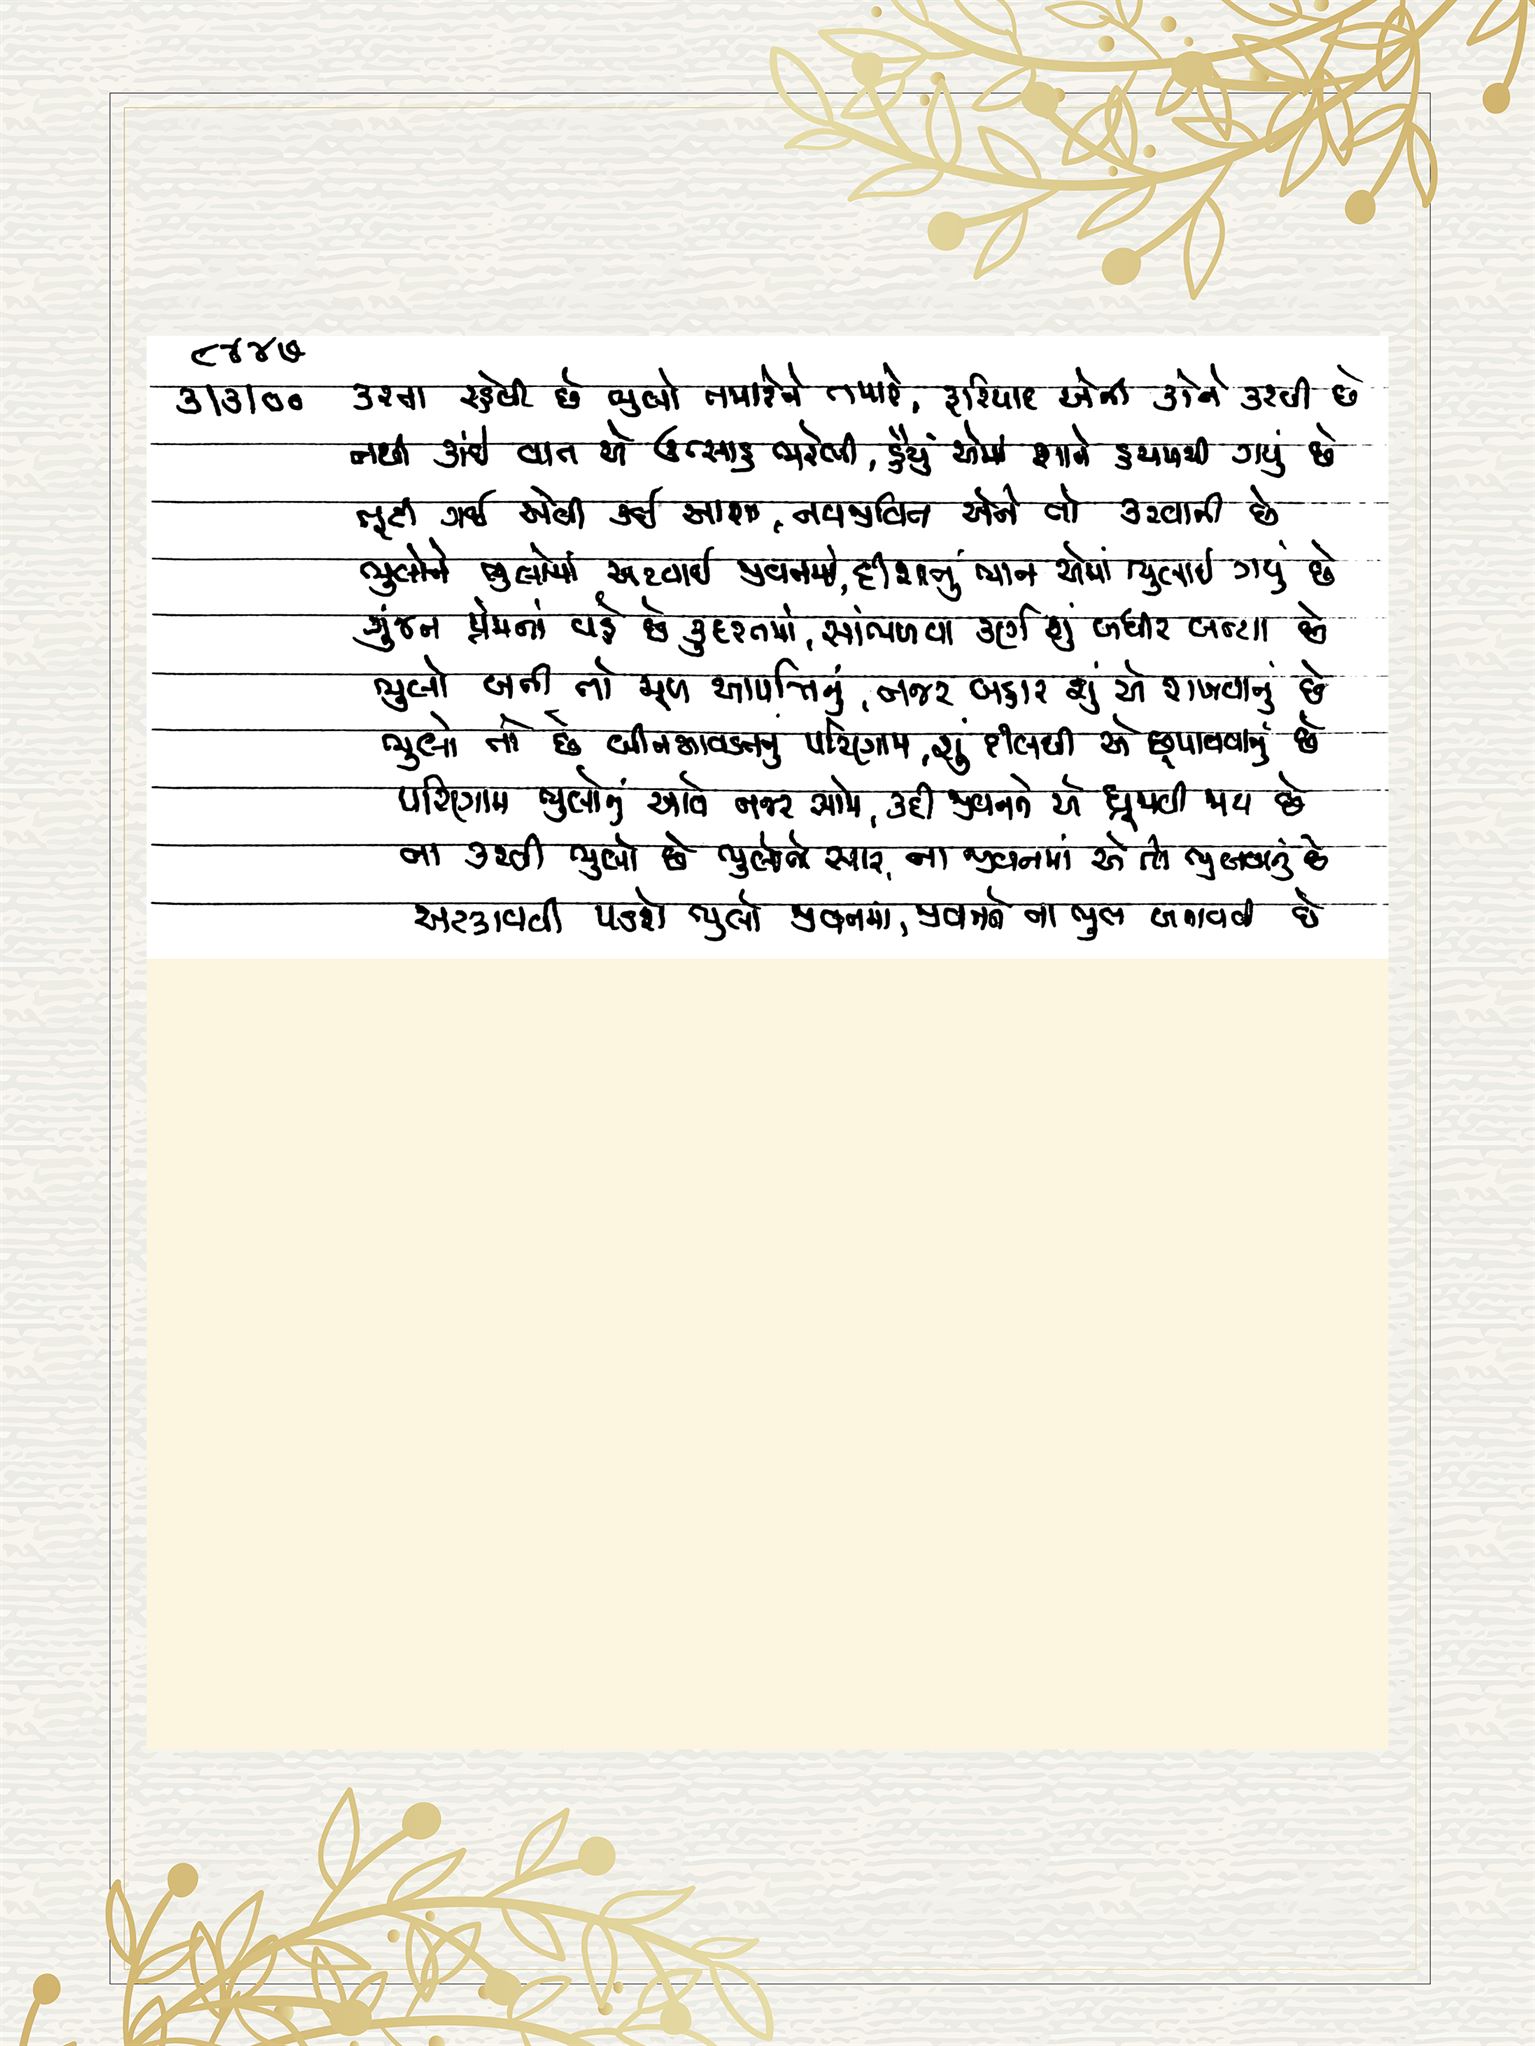 ૮૪૪૭
૩/૩/૦૦ કરતા રહેવી છે ભુલો તમારેને તમારે, ફરિયાદ એની કોને કરવી છે
નથી કાંઈ વાત એ ઉત્સાહ ભરેલી, હૈયું એમાં શાને હચમચી ગયું છે
તૂટી ગઈ એવી કઈ આશા, નવજીવિન એને તો કરવાની છે
ભુલોને ભુલોમાં અટવાઈ જીવનમાં, દીશાનું ભાન એમાં ભુલાઈ ગયું છે
ગુંજન પ્રેમનાં વહે છે કુદરતમાં, સાંભળવા કર્ણ શું બધીર બન્યા છે
ભુલો બની તો મૂળ આપત્તિનું, નજર બહાર શું એ રાખવાનું છે
ભુલો તો છે બીનઆવડતનું પરિણામ, શું દીલથી એ છૂપાવવાનું છે
પરિણામ ભુલોનું આવે નજર સામે, કદી જીવનને એ ધ્રૂજાવી જાય છે
ના કરવી ભુલો છે ભુલોને સાર, ના જીવનમાં એ તો ભુલવાનું છે
અટકાવવી પડશે ભુલો જીવનમાં, જીવનને ના ભુલ બનાવવી છે